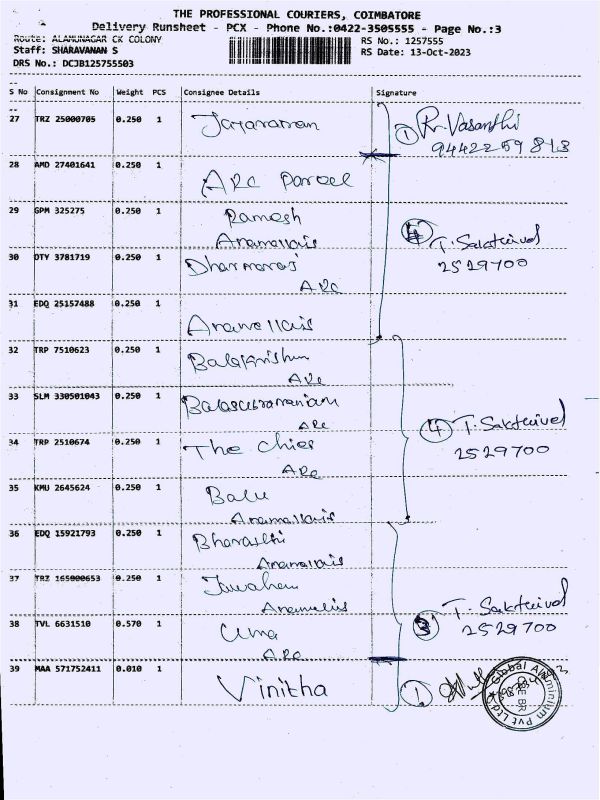 THE PROFESSIONAL COURIERS, COIMBATORE
Delivery Runsheet - PCX - Phone No.:0422-3505555 - Page No.:3
Route: ALAMUNAGAR CK COLONY
RS No.: 1257555
Staff: SHARAVANAN S
RS Date: 13-Oct-2023
DRS No.: DCJB125755503
S No Consignment No Weight PCS Consignee Details Signature
27 TRZ 25000705 0.250 1 Jayaraman ① R. Vasanthi
9442259818
28 AMD 27401641 0.250 1 ARC Parcel
29 GPM 325275 0.250 1 Ramesh
Anamallais
④ T. Sakthivel
30 DTY 3781719 0.250 1 Dharmaraj 2529700
ARC
31 EDQ 25157488 0.250 1
Anamallais
32 TRP 7510623 0.250 1 Balakrishnan
ARC
33 SLM 330501043 0.250 1 Balasubramaniam
ARC
④ T. Sakthivel
34 TRP 2510674 0.250 1 The Chief 2529700
ARC
35 KMU 2645624 0.250 1 Balu
Anamallais
36 EDQ 15921793 0.250 1 Bharathi
Anamallais
37 TRZ 165000653 0.250 1 Jawahar
Anamallais
③ T. Sakthivel
38 TVL 6631510 0.570 1 Uma 2529700
ARC
39 MAA 571752411 0.010 1 Vinitha ①
Global Aluminium Pvt Ltd